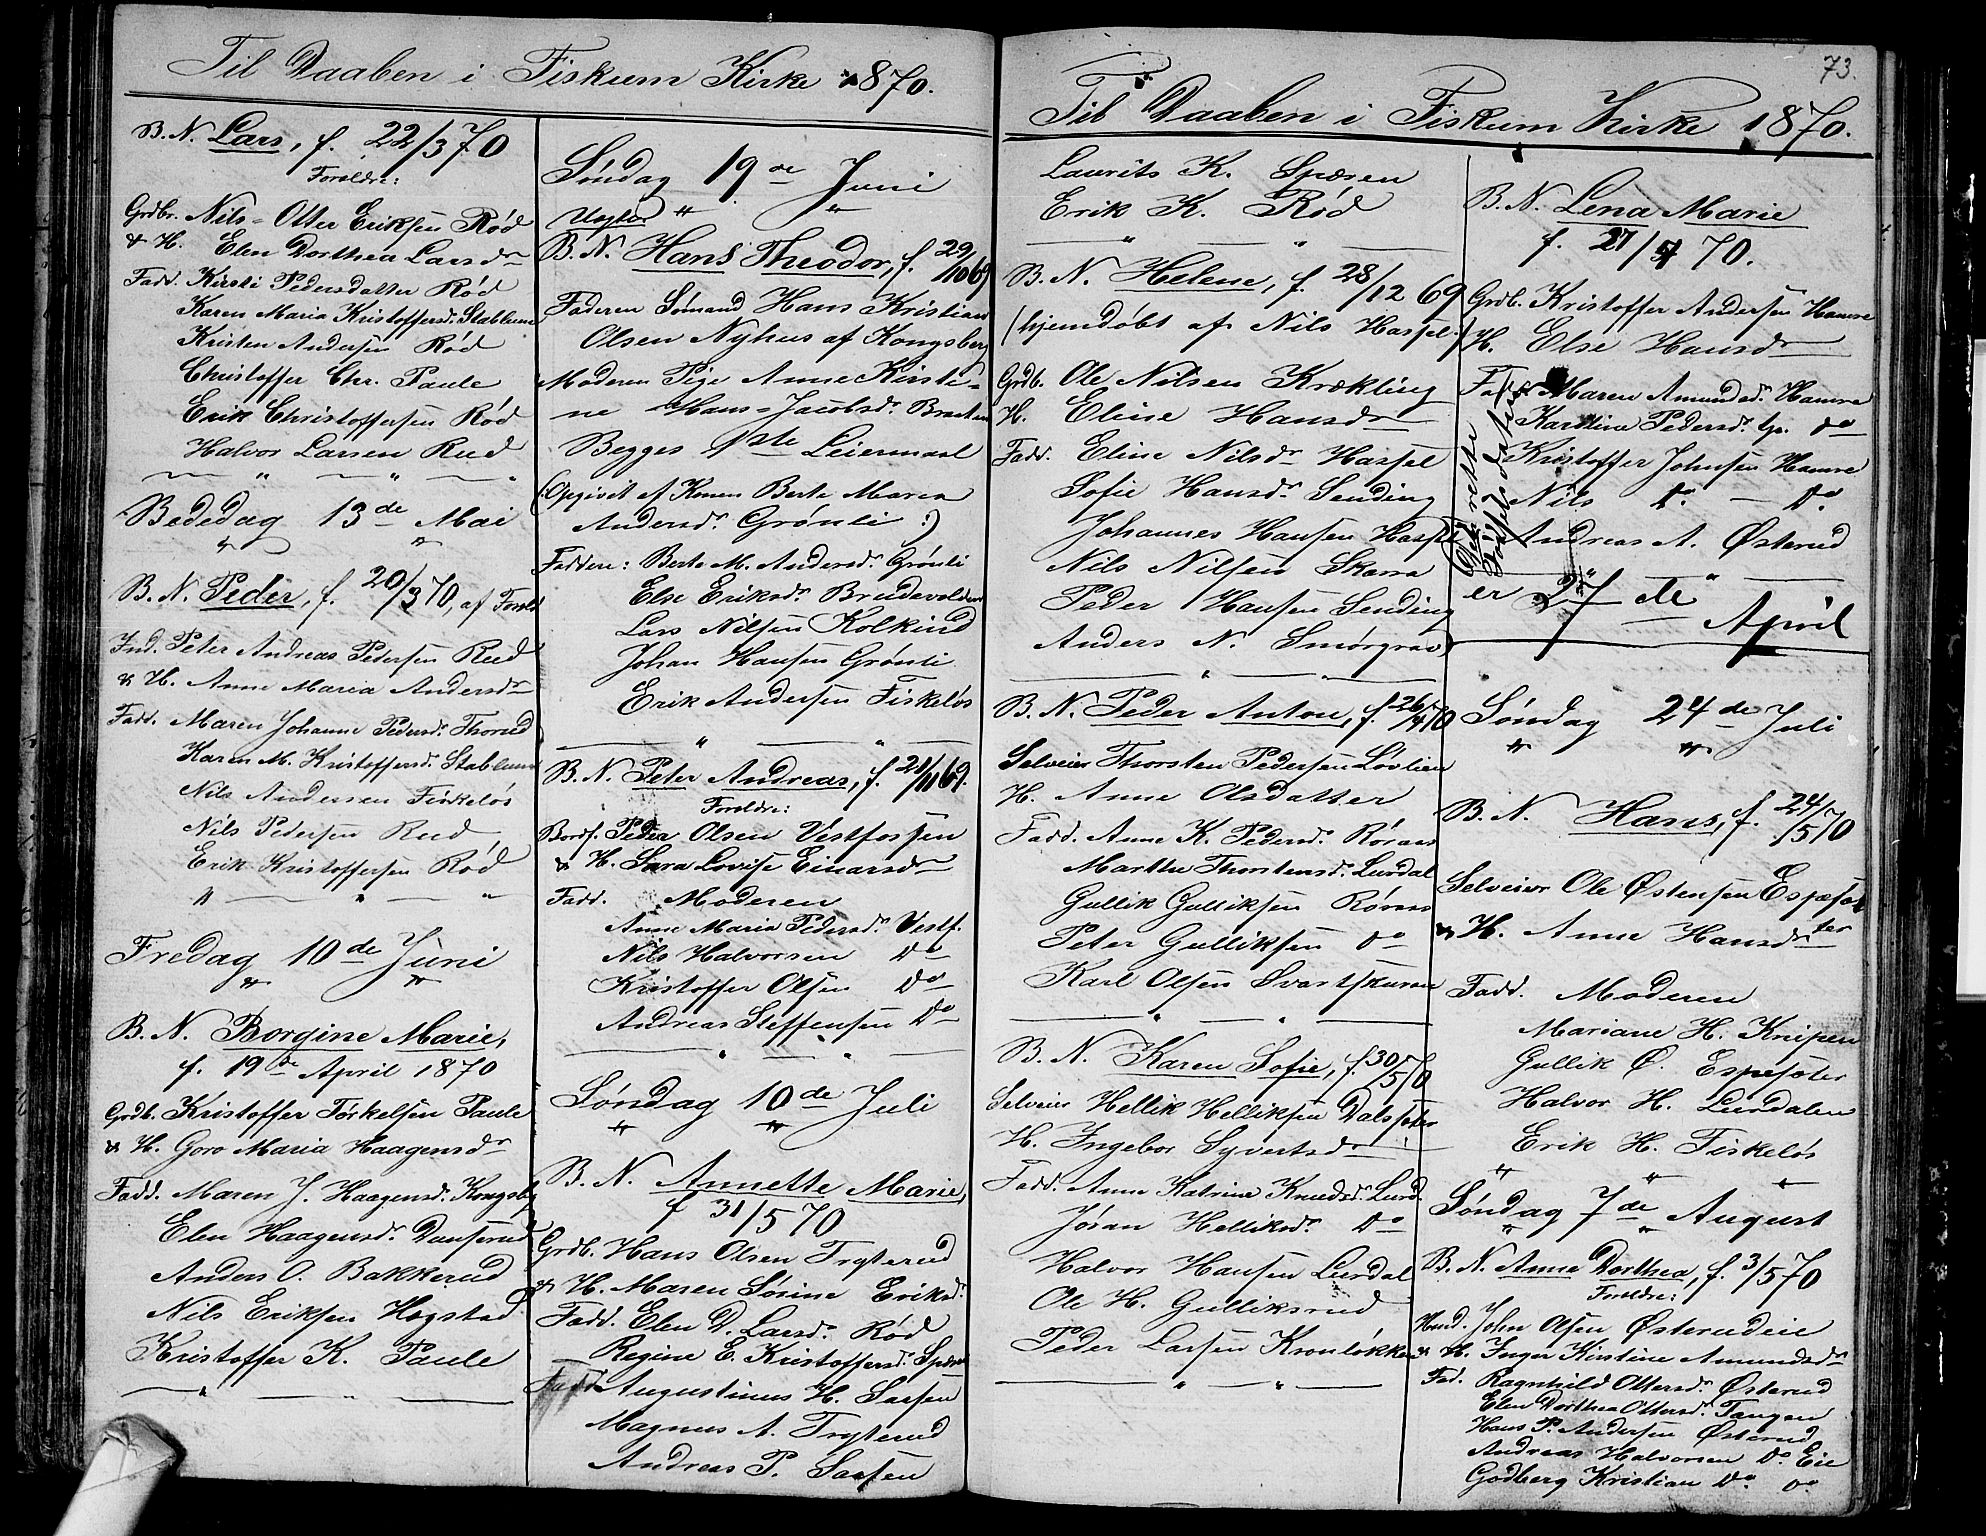 Til Daaben i Fiskum Kirke 1870.
B. N. Lars, f. 22/3 70
Foreldre:
Grdbr. Nils-Otter Eriksen Rød
& H. Elen Dorthea Larsdr
Fadd. Kirsti Pedersdatter Rød
Karen Maria Kristoffersd. Stablum
Kristen Andersen Rød
Christoffer Chr. Paule
Erik Christoffersen Rød
Halvor Larsen Rud
Bededag 13de Mai
B. N. Peder, f. 20/3 70, af Foreld
Ind. Peter Andreas Pedersen Rud
& H. Anne Maria Andersdr
Fadd. Maren Johanne Pedersdr. Thorud
Karen M. Kristoffersdr. Stablum
Nils Andersen Fiskeløs
Nils Pedersen Rud
Erik Kristoffersen Rød
Fredag 10de Juni
B. N. Borgine Marie,
f. 19de April 1870
Grdb. Kristoffer Torkelsen Paule
& H. Goro Maria Haagensdr
Fadd. Maren J. Haagensdr. Kongsbg
Elen Haagensdr. Dunserud
Anders O. Bakkerud
Nils Eriksen Hogstad
Kristoffer K. Paule
Søndag 19de Juni
Uægte
B. N. Hans Theodor, f. 29/10 69
Faderen Sømand Hans Kristian
Olsen Nyhus af Kongsberg
Moderen Pige Anne Kirsti-
ne Hans-Jacobsdr. Braaten
Begges 1ste Leiermaal
(: Opgivet af Konen Berte Maria
Andersdr. Grønli :)
Faddere: Berte M. Andersdr. Grønli
Else Eriksdr. Brudevolden
Lars Nilsen Kolkind
Johan Hansen Grønli
Erik Andersen Fiskeløs
B. N. Peter Andreas, f. 21/11 69.
Foreldre:
Bordf. Peder Olsen Vestfossen
& H. Sara Lovise Einarsdr
Fadd. Moderen
Anne Maria Pedersdr. Vestf.
Nils Halvorsen Do
Kristoffer Olsen Do
Andreas Steffensen Do
Søndag 10de Juli
B. N. Annette Marie,
f 31/5 70
Grdb. Hans Olsen Tryterud
& H. Maren Sørine Eriksd.
Fadd. Elen D. Larsdr. Rød
Regine E. Kristoffersdr. Spæren
Fadd. Augustinus H. Saasen
Magnus A. Tryterud
Andreas P. Saasen
73.
Til Daaben i Fiskum Kirke 1870.
Laurits K. Spæren
Erik K. Rød
B. N. Helene, f. 28/12 69
(hjemdøbt af Nils Hassel.)
Grdb. Ole Nilsen Krækling
H. Eline Hansdr
Fadd. Eline Nilsdr Hassel
Sofie Hansdr. Sending
Johannes Hansen Hassel
Nils Nilsen Skarra
Peder Hansen Sending
Anders N. Smørgrav
B. N. Peder Anton, f. 26/4 70
Selveier Thorsten Pedersen Lovlien
H. Anne Olsdatter
Fadd. Anne K. Pedersdr. Røraas
Marthe Thorstensdr. Lurdal
Gullik Gulliksen Røraas
Peter Gulliksen Do
Karl Olsen Svartskuren
B. N. Karen Sofie, f. 30/5 70
Selveier Hellik Helliksen Dalsseter
H. Ingebor Syvertsdr
Fadd. Anne Katrine Knudsdr. Lurd.
Jøran Helliksdr. Do
Halvor Hansen Lurdal
Ole H. Gulliksrud
Peder Larsen Kronløkken
B. N. Lena Marie
f. 27/4 70.
Grdb. Kristoffer Andersen Hamre
H. Else Hansdr
Fadd. Maren Amundsdr. Hamre
Karoline Pedersdr. tj. do
Kristoffer Johnsen Hamre
Nils Do — Do
Andreas A. Østerud
Den rette
Fødselsdatum
er 27de April
Søndag 24de Juli
B. N. Hans, f. 24/5 70
Selveier Ole Østensen Espeseter
& H. Anne Hansdr
Fadd. Moderen
Mariane H. Knipen
Gullik Ø. Espeseter
Halvor H. Lurdalen
Erik H. Fiskeløs
Søndag 7de August
B. N. Anne Dorthea, f. 3/5 70
Foreldre:
Husd. John Olsen Østerudeie
& H. Inger Kirstine Amundsdr
Fad. Ragnhild Ottersdr. Østerud
Elen Dorthea Ottersdr. Tangen
Hans P. Andersen Østerud
Andreas Halvorsen Do Eie
Godberg Kristian Do Do